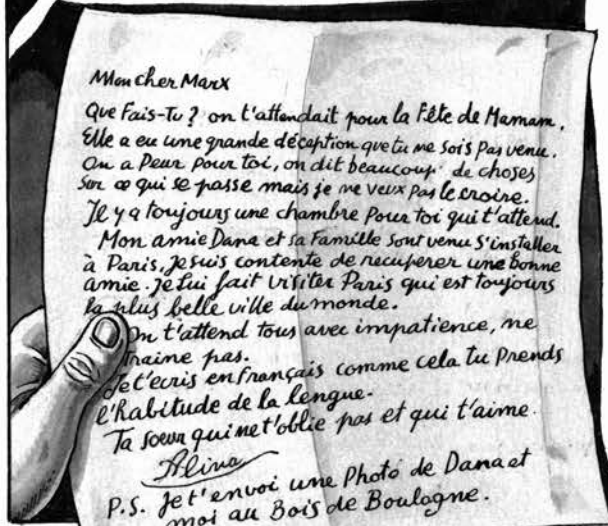 Mon cher Marx
Que Fais-Tu ? on t'attendait pour la Fête de Maman.
Elle a eu une grande déception que tu ne sois pas venu.
On a Peur Pour toi, on dit beaucoup de choses
sur ce qui se passe mais je ne veux pas le croire.
Il y a toujours une chambre Pour toi qui t'attend.
Mon amie Dana et sa Famille sont venu s'installer
à Paris, je suis contente de recuperer une bonne
amie. je lui fait visiter Paris qui est toujours
la plus belle ville du monde.
On t'attend tous avec impatience, ne
traine pas.
Je t'ecris en français comme cela tu Prends
l'habitude de la lengue.
Ta soeur qui ne t'oblie pas et qui t'aime.
Alina
P.S. Je t'envoi une Photo de Dana et
moi au Bois de Boulogne.